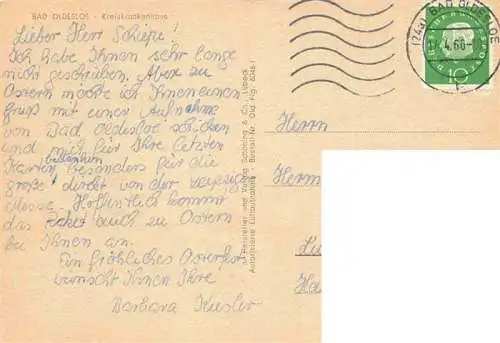 BAD OLDESLOE - Kreiskrankenhaus
Lieber Herr Schiepe!
Ich habe Ihnen sehr lange
nicht geschrieben. Aber zu
Ostern möchte ich Ihnen einen
Gruß mit einer Aufnahme
von Bad Oldesloe schicken
und mich für Ihre letzten
Karten bedanken besonders für die
große direkt von der Leipziger
Messe. Hoffentlich kommt
das Paket auch zu Ostern
bei Ihnen an.
Ein fröhliches Osterfest
wünscht Ihnen Ihre
Barbara
Hersteller und Verlag Schöning & Co., Lübeck
Autorisierte Luftaufnahme Bestell-Nr. Old
Herrn
(24a) BAD OLDESLOE
4.60
10